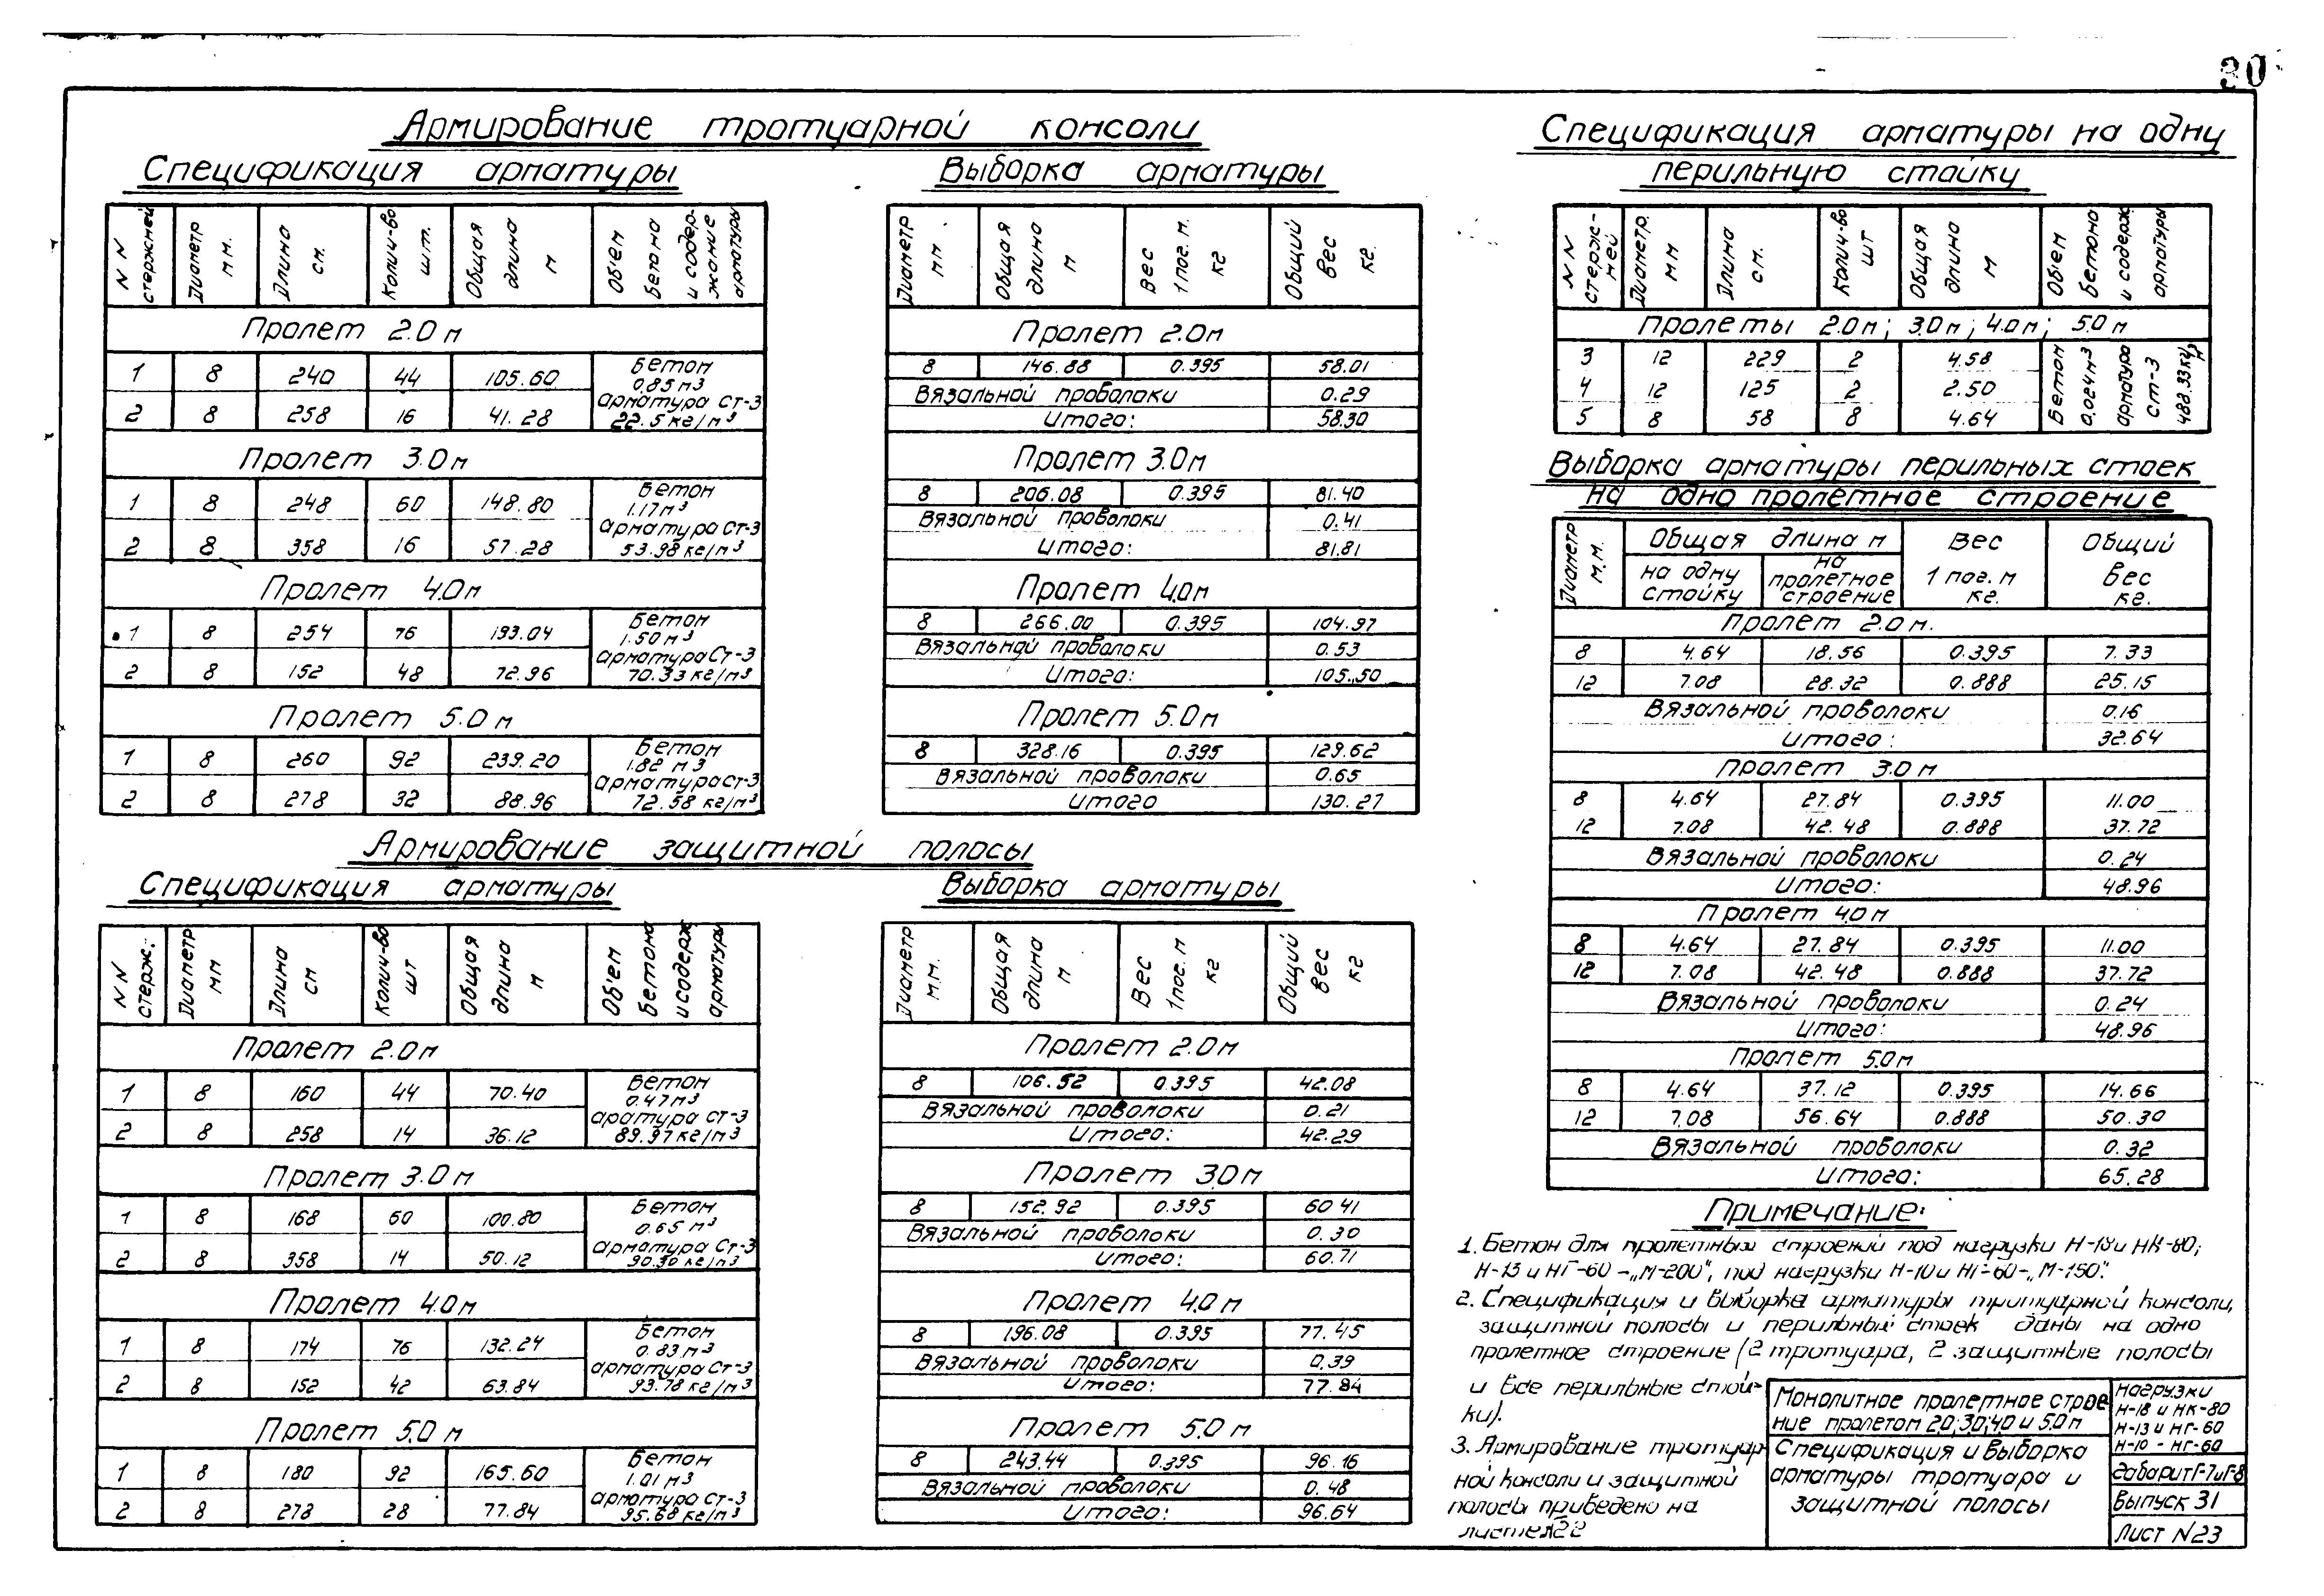 30
Армирование тротуарной консоли
Спецификация арматуры
NN стержней | Диаметр мм. | Длина см. | Колич-во шт. | Общая длина м | Объем бетона и содержание арматуры
Пролет 2.0 м
1 8 240 44 105.60 Бетон 0.85 м3
2 8 258 16 41.28 арматура Ст-3 22.5 кг/м3
Пролет 3.0 м
1 8 248 60 148.80 Бетон 1.17 м3
2 8 358 16 57.28 арматура Ст-3 53.98 кг/м3
Пролет 4.0 м
1 8 254 76 193.04 Бетон 1.50 м3
2 8 152 48 72.96 арматура Ст-3 70.33 кг/м3
Пролет 5.0 м
1 8 260 92 239.20 Бетон 1.82 м3
2 8 278 32 88.96 арматура Ст-3 72.58 кг/м3
Выборка арматуры
Диаметр мм. | Общая длина м | Вес 1 пог. м. кг | Общий вес кг.
Пролет 2.0 м
8 146.88 0.395 58.01
Вязальной проволоки 0.29
Итого: 58.30
Пролет 3.0 м
8 206.08 0.395 81.40
Вязальной проволоки 0.41
Итого: 81.81
Пролет 4.0 м
8 266.00 0.395 104.97
Вязальной проволоки 0.53
Итого: 105.50
Пролет 5.0 м
8 328.16 0.395 129.62
Вязальной проволоки 0.65
Итого 130.27
Армирование защитной полосы
Спецификация арматуры
NN стерж.: | Диаметр мм | Длина см | Колич-во шт | Общая длина м | Объем бетона и содерж арматуры
Пролет 2.0 м
1 8 160 44 70.40 Бетон 0.47 м3
2 8 258 14 36.12 араматура Ст-3 89.97 кг/м3
Пролет 3.0 м
1 8 168 60 100.80 Бетон 0.65 м3
2 8 358 14 50.12 арматура Ст-3 90.30 кг/м3
Пролет 4.0 м
1 8 174 76 132.24 Бетон 0.83 м3
2 8 152 42 63.84 арматура Ст-3 93.78 кг/м3
Пролет 5.0 м
1 8 180 92 165.60 Бетон 1.01 м3
2 8 278 28 77.84 арматура Ст-3 95.68 кг/м3
Выборка арматуры
Диаметр м.м. | Общая длина м | Вес 1 пог. м кг | Общий вес кг
Пролет 2.0 м
8 106.52 0.395 42.08
Вязальной проволоки 0.21
Итого: 42.29
Пролет 3.0 м
8 152.92 0.395 60 41
Вязальной проволоки 0.30
Итого: 60.71
Пролет 4.0 м
8 196.08 0.395 77.45
Вязальной проволоки 0.39
Итого: 77.84
Пролет 5.0 м
8 243.44 0.395 96.16
Вязальной проволоки 0.48
Итого: 96.64
Спецификация арматуры на одну
перильную стойку
NN стержней | Диаметр мм | Длина см. | Колич-во шт | Общая длина м | Объем бетона и содерж арматуры
Пролеты 2.0 м; 3.0 м; 4.0 м; 5.0 м
3 12 229 2 4.58
4 12 125 2 2.50
5 8 58 8 4.64
Бетон 0.024 м3 арматура Ст-3 488.33 кг/м3
Выборка арматуры перильных стоек
на одно пролетное строение
Диаметр м.м. | Общая длина м | Вес 1 пог. м кг. | Общий вес кг.
на одну стойку | на пролетное строение
Пролет 2.0 м.
8 4.64 18.56 0.395 7.33
12 7.08 28.32 0.888 25.15
Вязальной проволоки 0.16
Итого: 32.64
Пролет 3.0 м
8 4.64 27.84 0.395 11.00
12 7.08 42.48 0.888 37.72
Вязальной проволоки 0.24
Итого: 48.96
Пролет 4.0 м
8 4.64 27.84 0.395 11.00
12 7.08 42.48 0.888 37.72
Вязальной проволоки 0.24
Итого: 48.96
Пролет 5.0 м
8 4.64 37.12 0.395 14.66
12 7.08 56.64 0.888 50.30
Вязальной проволоки 0.32
Итого: 65.28
Примечание:
1. Бетон для пролетных строений под нагрузки Н-18 и НК-80;
Н-13 и НГ-60 -„М-200", под нагрузки Н-10 и НГ-60-„М-150".
2. Спецификация и выборка арматуры тротуарной консоли,
защитной полосы и перильных стоек даны на одно
пролетное строение (2 тротуара, 2 защитные полосы
и все перильные стой-
ки).
3. Армирование тротуар-
ной консоли и защитной
полосы приведено на
листе №22
Монолитное пролетное строе
ние пролетом 2.0; 3.0; 4.0 и 5.0 м
Спецификация и выборка
арматуры тротуара и
защитной полосы
Нагрузки
Н-18 и НК-80
Н-13 и НГ-60
Н-10 - НГ-60
Габарит Г-7 и Г-8
Выпуск 31
Лист N 23